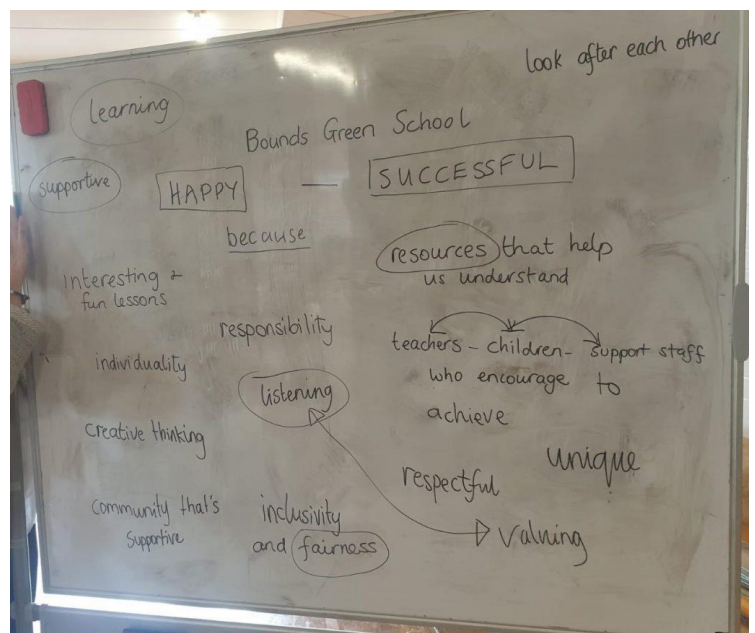 look after each other
learning
Bounds Green School
supportive
HAPPY — SUCCESSFUL
because
resources that help
us understand
interesting &
fun lessons
responsibility
teachers - children - support staff
who encourage to
achieve
individuality
listening
creative thinking
unique
respectful
community that's
supportive
inclusivity
and fairness
valuing